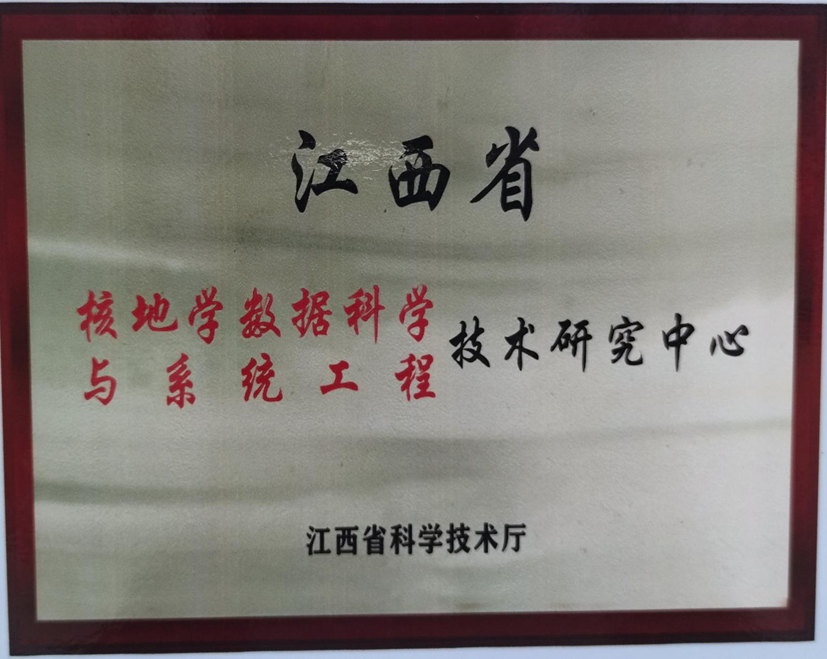 江西省
核地学数据科学
与系统工程
技术研究中心
江西省科学技术厅